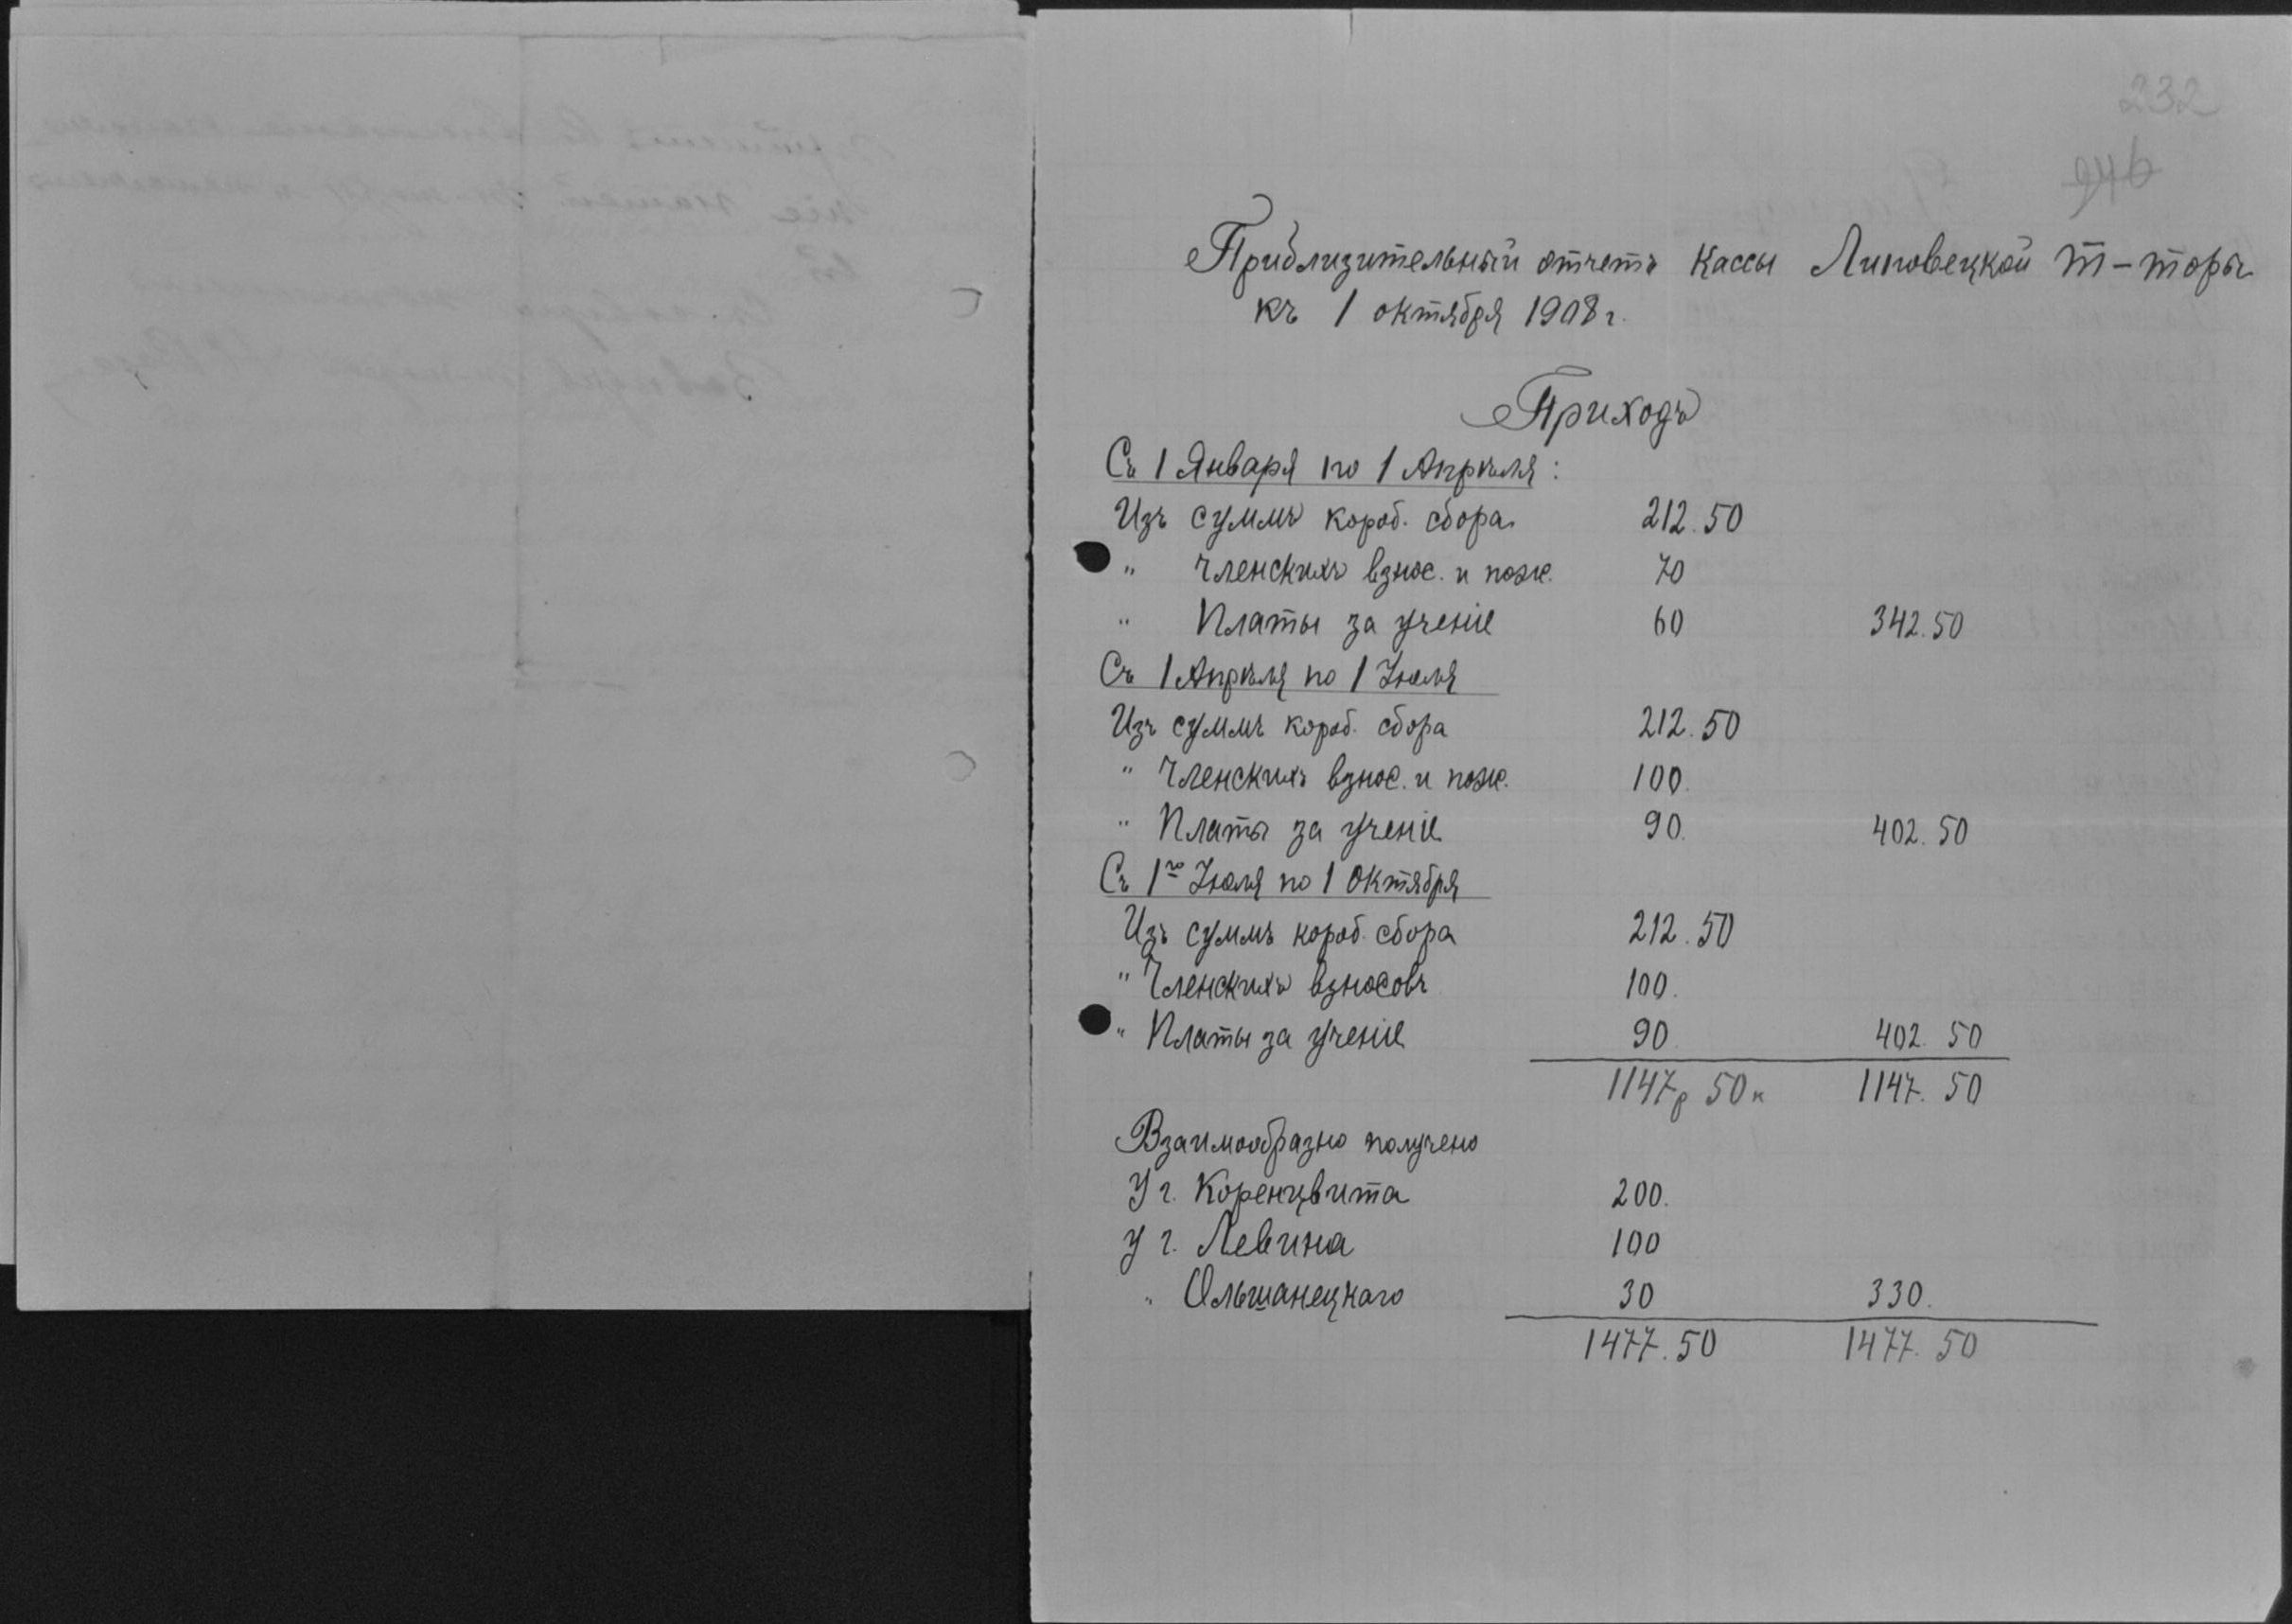 232
946
Приблизительный отчетъ кассы Липовецкой т-торы
къ 1 октября 1908 г.
Приходъ
Съ 1 Января по 1 Апрѣля :
Изъ суммъ короб. сбора 212.50
" Членскихъ взнос. и пож. 70
" Платы за ученіе 60 342.50
Съ 1 Апрѣля по 1 Іюля
Изъ суммъ короб. сбора 212.50
" Членскихъ взнос. и пож. 100.
" Платы за ученіе 90. 402.50
Съ 1го Іюля по 1 Октября
Изъ суммъ короб. сбора 212.50
" Членскихъ взносовъ 100.
" Платы за ученіе 90. 402.50
1147р 50к 1147.50
Взаимообразно получено
У г. Коренцвита 200.
У г. Левина 100
" Ольшанецкаго 30 330.
1477.50 1477.50